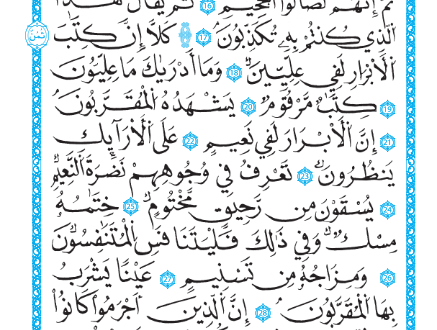 ثُمَّ إِنَّهُمْ لَصَالُوا الْجَحِيمِ 16 ثُمَّ يُقَالُ هَٰذَا
الَّذِي كُنتُم بِهِ تُكَذِّبُونَ 17 كَلَّا إِنَّ كِتَٰبَ
الْأَبْرَارِ لَفِي عِلِّيِّينَ 18 وَمَا أَدْرَىٰكَ مَا عِلِّيُّونَ
19 كِتَٰبٌ مَّرْقُومٌ 20 يَشْهَدُهُ الْمُقَرَّبُونَ
21 إِنَّ الْأَبْرَارَ لَفِي نَعِيمٍ 22 عَلَى الْأَرَآئِكِ
يَنظُرُونَ 23 تَعْرِفُ فِي وُجُوهِهِمْ نَضْرَةَ النَّعِيمِ
24 يُسْقَوْنَ مِن رَّحِيقٍ مَّخْتُومٍ 25 خِتَٰمُهُ
مِسْكٌ وَفِي ذَٰلِكَ فَلْيَتَنَافَسِ الْمُتَنَٰفِسُونَ
26 وَمِزَاجُهُ مِن تَسْنِيمٍ 27 عَيْنًا يَشْرَبُ
بِهَا الْمُقَرَّبُونَ 28 إِنَّ الَّذِينَ أَجْرَمُوا كَانُوا